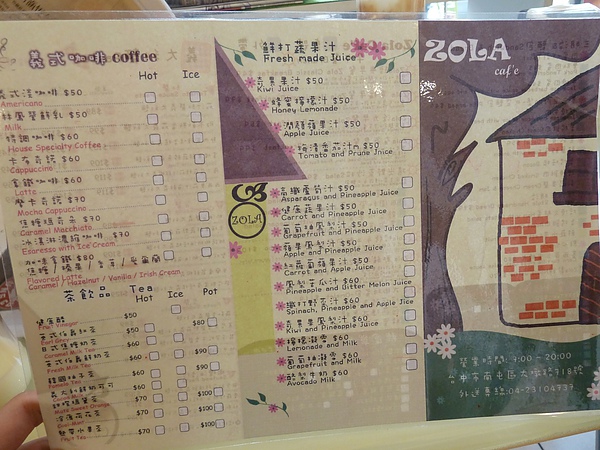 義式咖啡 coffee
Hot Ice
義式濃咖啡 $50
Americano
蜂蜜菊鮮乳 $50
Milk
特調咖啡 $60
House Specialty Coffee
卡布奇諾 $60
Cappuccino
拿鐵咖啡 $60
Latte
摩卡奇諾 $70
Mocha Cappuccino
焦糖瑪奇朵 $70
Caramel Macchiato
冰淇淋濃縮咖啡 $70
Espresso with Ice Cream
$80
Flavored Latte
Caramel / Hazelnut / Vanilla / Irish Cream
茶飲品 Tea
Hot Ice Pot
健康醋 $50
Fruit Vinegar
$50 $80
Earl Grey
$60 $90
Caramel Milk Tea
$60 $90
Fresh Milk Tea
$60 $90
$70
$70 $100
Sweet Orange
$70 $100
$70 $100
Fruit Tea
鮮打蔬果汁
Fresh made Juice
奇異果汁 $50
Kiwi Juice
蜂蜜檸檬汁 $50
Honey Lemonade
潤發蘋果汁 $50
Apple Juice
梅漬番茄汁 $50
Tomato and Prune Juice
高纖蘆筍汁 $50
Asparagus and Pineapple Juice
健康蔬果汁 $50
Carrot and Pineapple Juice
葡萄柚鳳梨汁 $50
Grapefruit and Pineapple Juice
蘋果鳳梨汁 $50
Apple and Pineapple Juice
紅蘿蔔蘋果汁 $50
Carrot and Apple Juice
鳳梨苦瓜汁 $60
Pineapple and Bitter Melon Juice
$60
Spinach, Pineapple and Apple Juice
奇異果鳳梨汁 $60
Kiwi and Pineapple Juice
檸檬凝雪 $60
Lemonade and Milk
葡萄柚凝雪 $60
Grapefruit and Milk
酪梨牛奶 $60
Avocado Milk
ZOLA
ZOLA
caf'e
營業時間：9:00～20:00
台中市南屯區大墩路718號
外送專線:04-23104737